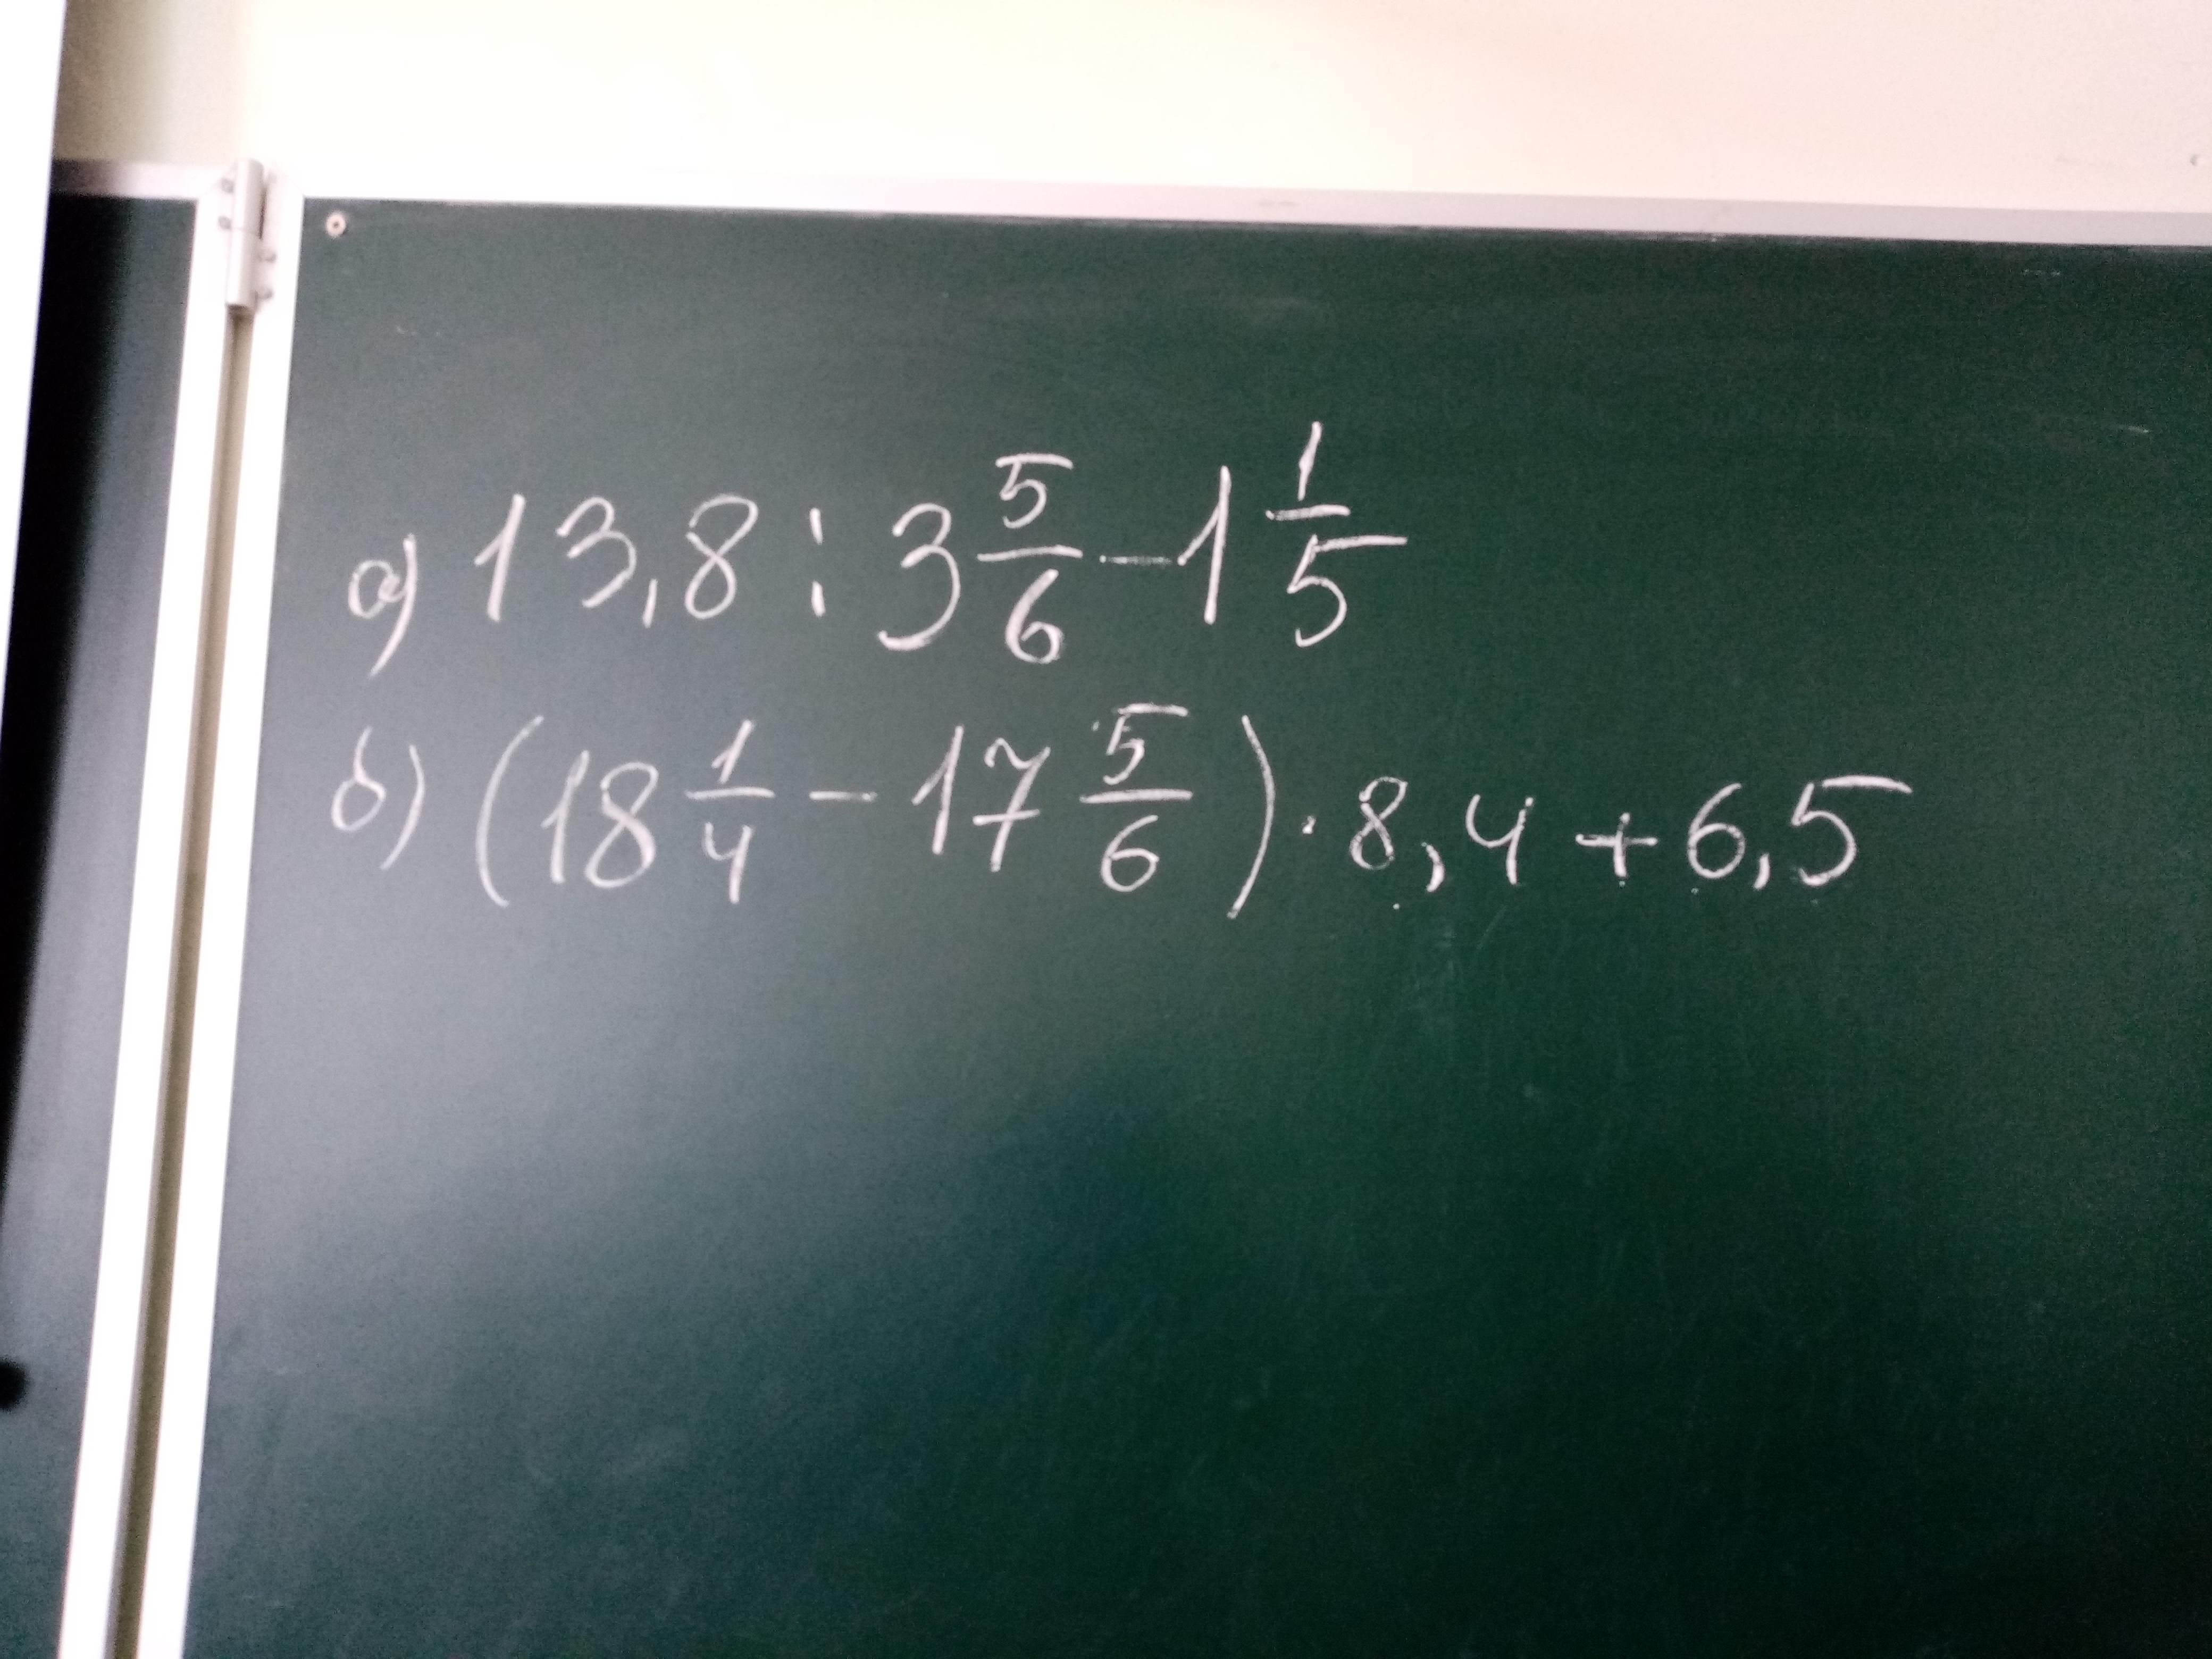 а) 13,8 : 3 5/6 - 1 1/5
б) (18 1/4 - 17 5/6) · 8,4 + 6,5